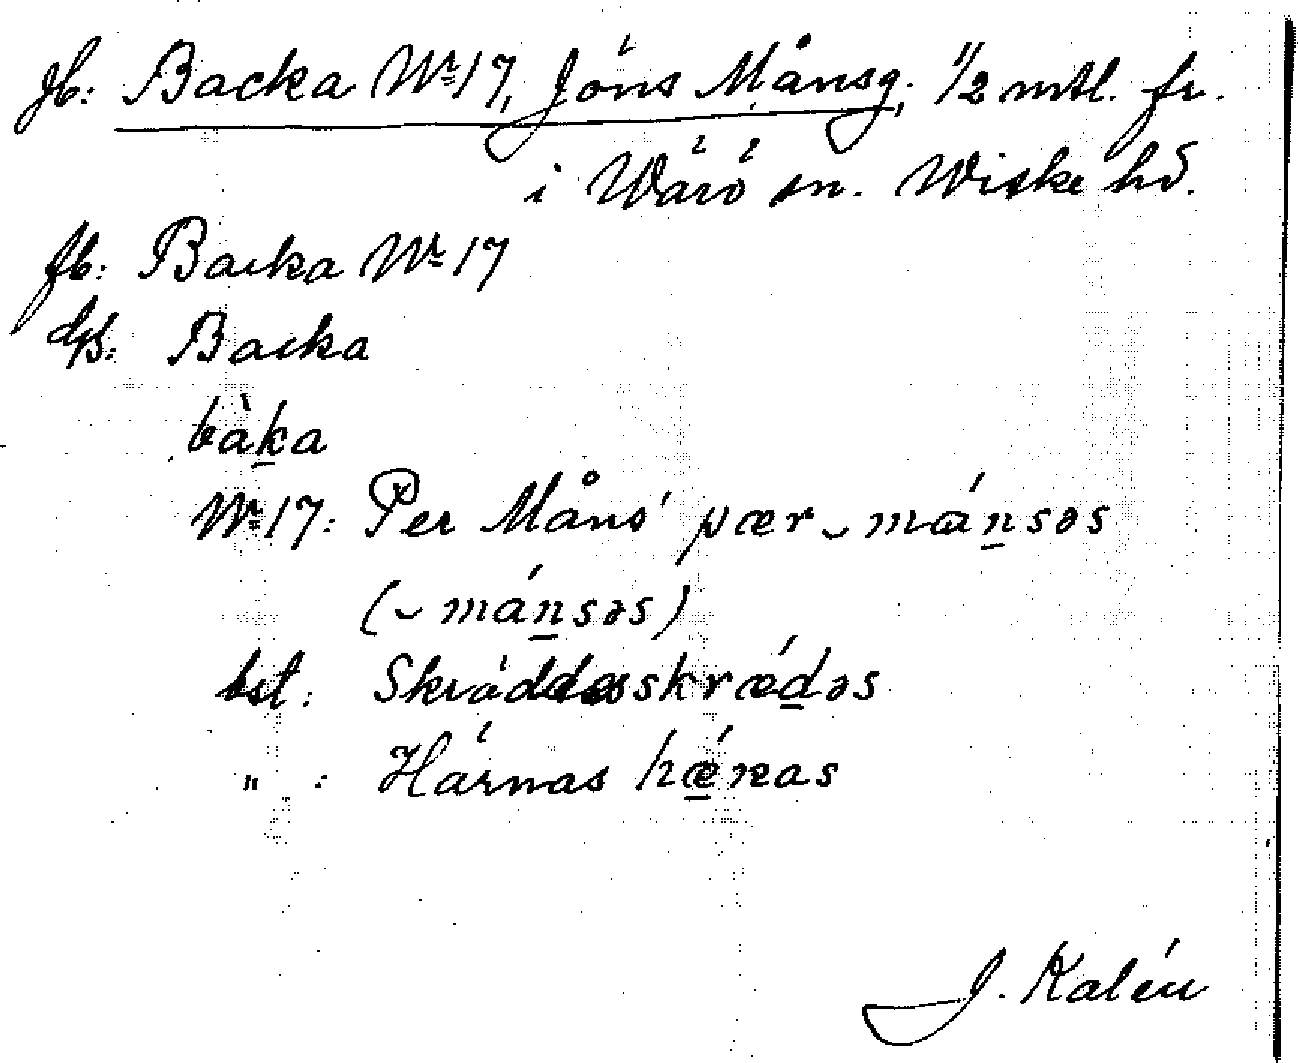 Jb: Backa Nr 17, Jöns Månsg. 1/2 mtl. fr.
i Wärö sn. Wiske hd.
fb: Backa Nr 17
Backa
bàka
Nr 17: Per Måns' pær‿mǻnsəs
(‿mánsəs)
bst: Skräddas skrǽdəs
" : Härnas hǽnas
J. Kalén